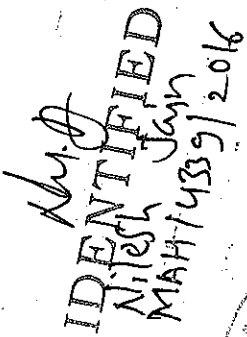 IDENTIFIED
Nilesh Jain
MAH/4339/2016